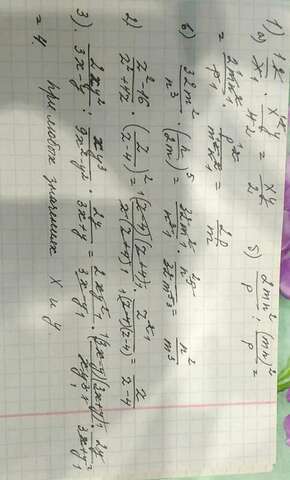 1)
а) 12/x · x²y/42 = xy/2   б) 2mn²/p : (mn)²/p =
= 2mn²/p · p/m²n² = 2/m
в) 32m²/n³ · (n/2m)⁵ = 32m²·n⁵/n³·32m⁵ = n²/m³
2) z²-16/z²+4z · (z/z-4)² = (z-4)(z+4)·z²/z(z+4)·(z-4)(z-4) = z/z-4
3) 2xy²/3x-y : xy³/9x²-y² · 2y/3x+y = 2xy²·(3x-y)(3x+y)·2y/(3x-y)·xy³·(3x+y) =
= 4   при любых значениях x и y